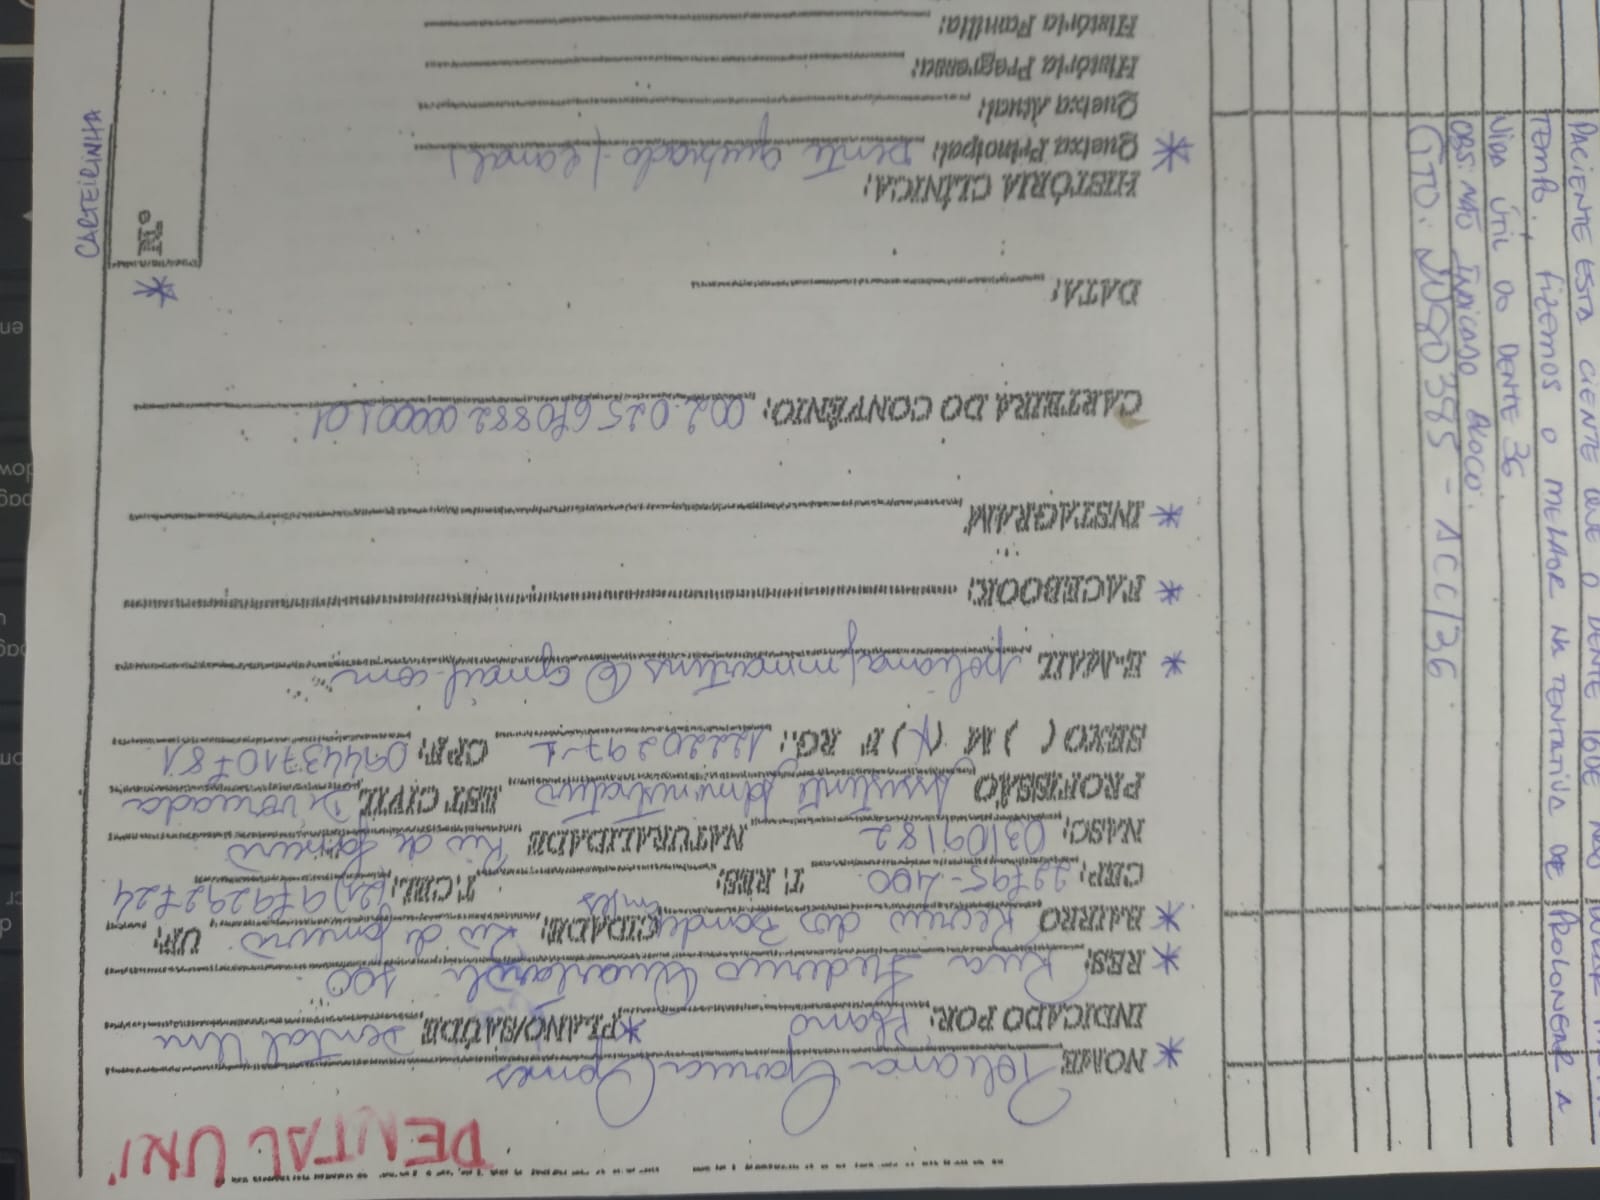 DENTAL UNI
* NOME Poliana Garcia Gomes
INDICADO POR: Plano * PLANO/SAÚDE Dental Uni
* RES: Rua Frederico 100
* BAIRRO Recreio dos Bandeirantes CIDADE: Rio de Janeiro UF:
CEP: 22795-400 T. RES: T.CEL: (21) 979292724
NASC: 03/09/82 NATURALIDADE Rio de Janeiro
PROFISSÃO Assistente Administrativo EST CIVIL Divorciada
SEXO ( ) M (X) F RG: 12220297-1 CPF: 09443710781
* E-MAIL @gmail.com
* FACEBOOK:
* INSTAGRAM
CARTEIRA DO CONVÊNIO: 002.025 670882 00000101
DATA:
HISTÓRIA CLÍNICA:
* Queixa Principal: Dente quebrado / (canal)
Queixa Atual:
História Pregressa:
História Família:
* Nº
CARTEIRINHA
PACIENTE ESTÁ CIENTE QUE O DENTE PODE NÃO DURAR
TEMPO. FIZEMOS O MELHOR NA TENTATIVA DE PROLONGAR A
VIDA ÚTIL DO DENTE 36
OBS: NÃO INDICADO BLOCO.
GTO: - 1CC/36